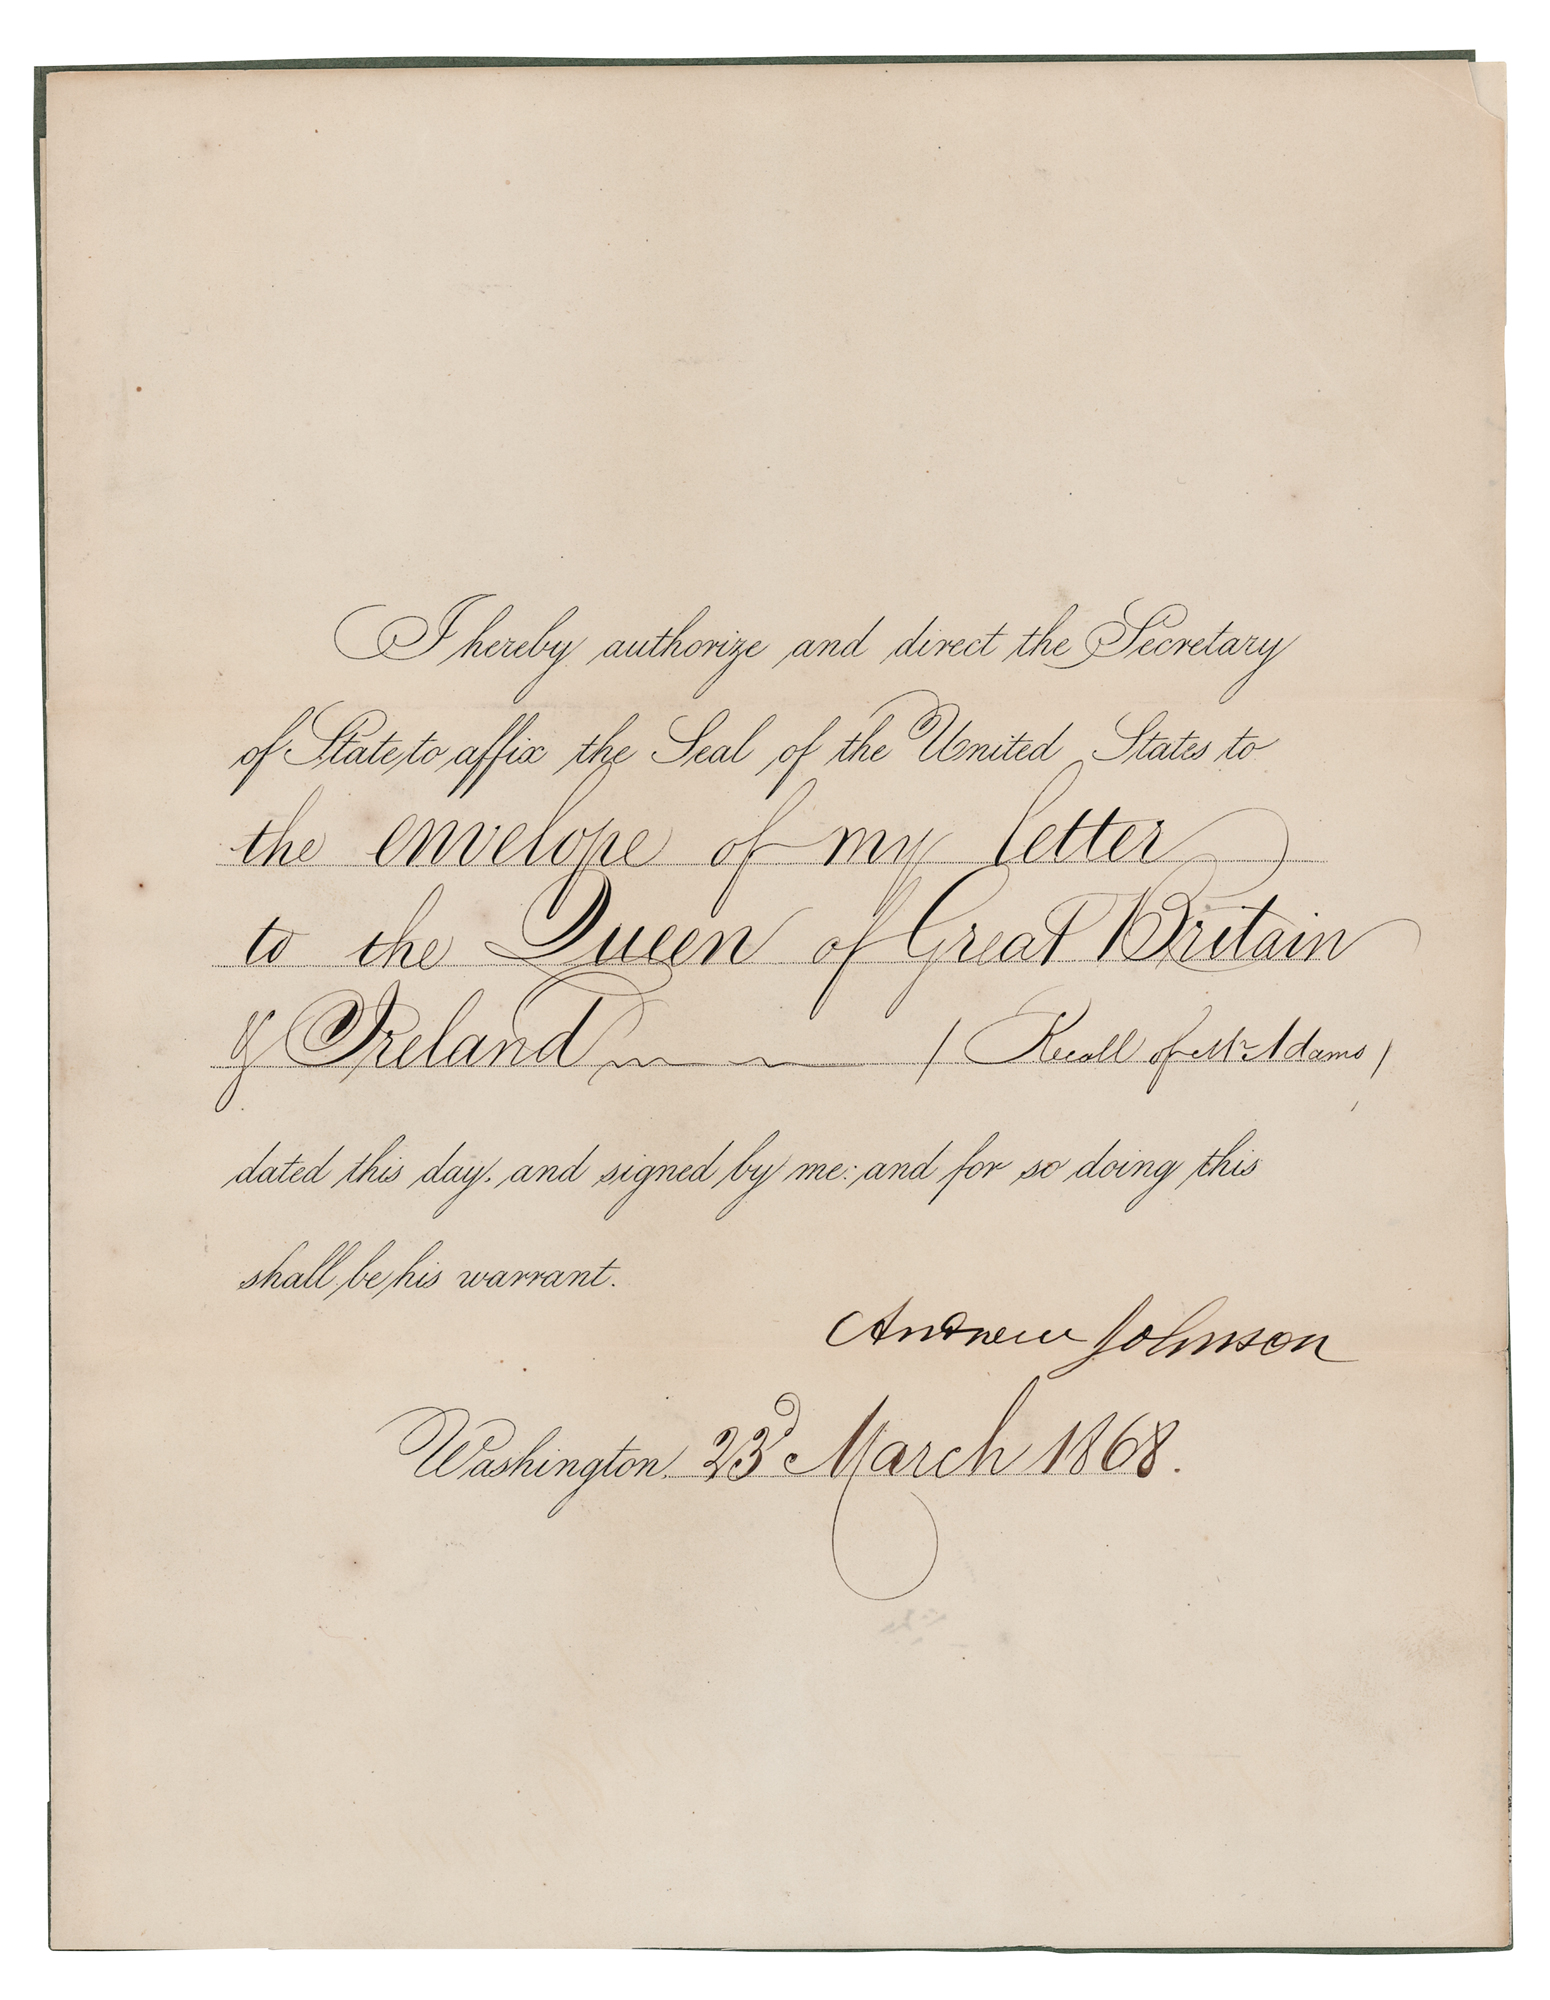 I hereby authorize and direct the Secretary
of State to affix the Seal of the United States to
the envelope of my letter
to the Queen of Great Britain
& Ireland ( Recall of Mr. Adams )
dated this day, and signed by me: and for so doing this
shall be his warrant.
Andrew Johnson
Washington, 23d March 1868.